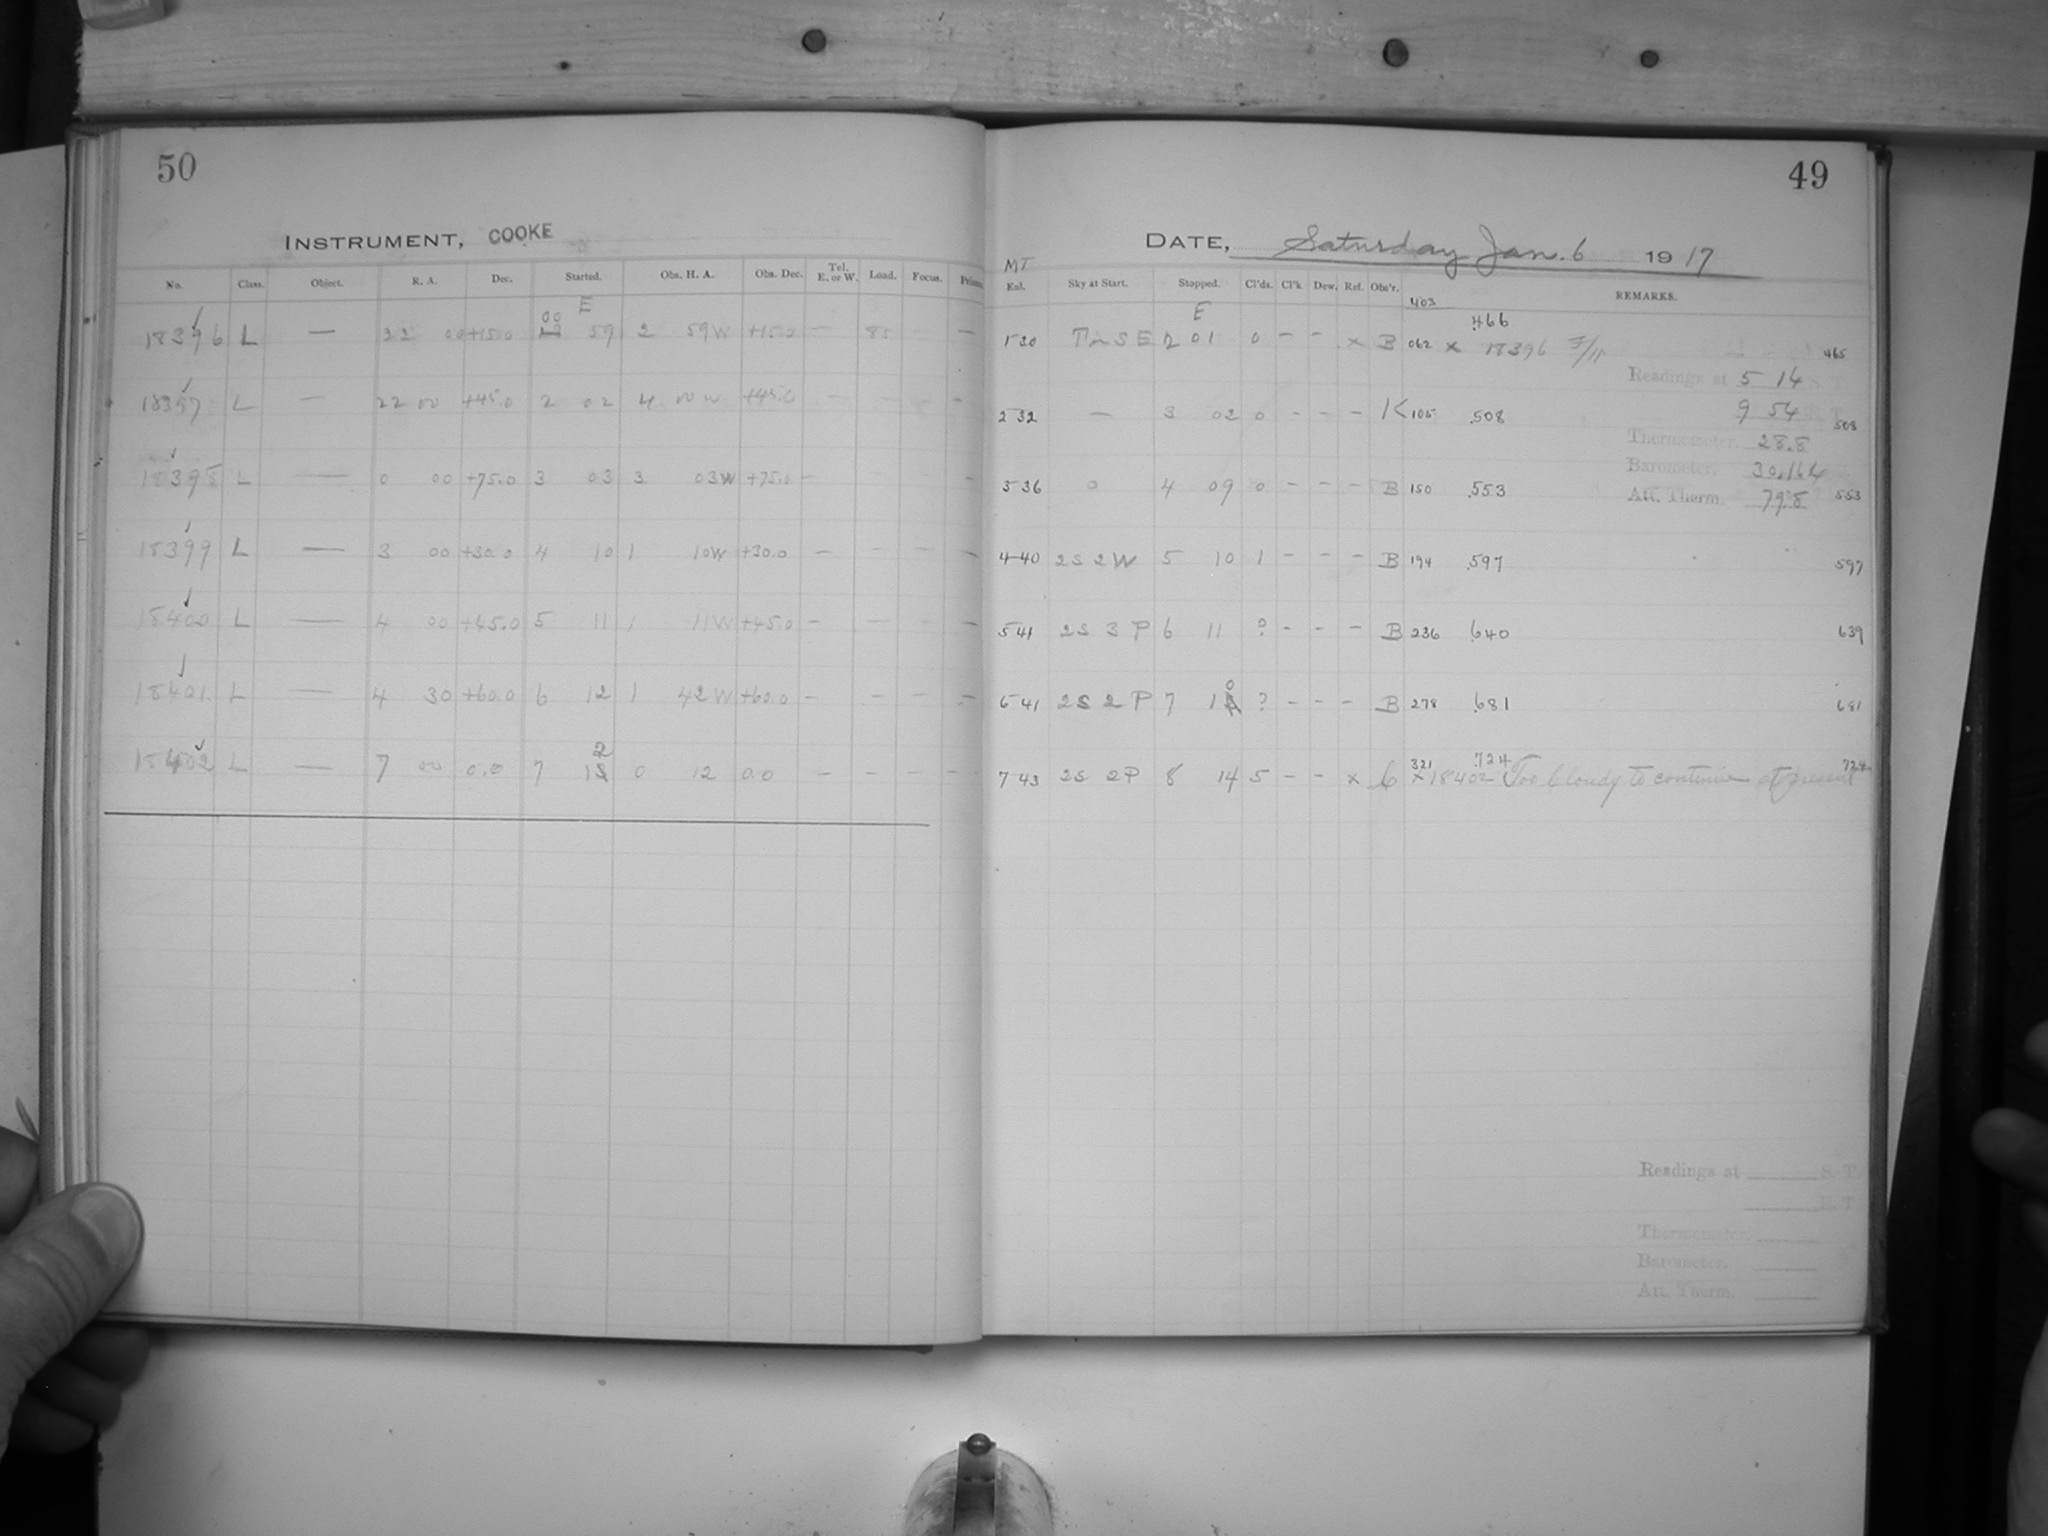 50
INSTRUMENT, COOKE
No. Class. Object. R. A. Dec. Started. Obs. H. A. Obs. Dec. Tel. E. or W. Load. Focus.
E
00
18396 L — 22 00 +15.0 59 2 59W +15.0 — 85 —
18397 L — 22 00 +45.0 2 02 4 00 W +45.0 — — — —
18398 L — 0 00 +75.0 3 03 3 03W +75.0 — —
18399 L — 3 00 +30.0 4 10 1 10W +30.0 — — — — —
18400 L — 4 00 +45.0 5 11 1 11W +45.0 — — — — —
18401 L — 4 30 +60.0 6 12 1 42W +60.0 — — — — —
2
18402 L — 7 00 0.0 7 1 0 12 0.0 — — — — —
49
DATE, Saturday Jan. 6 1917
MT
Sky at Start. Stopped. Cl'ds. Cl'k Dew. Ref. Obs'r. REMARKS.
403
E
.466
2 01 0 — — x B 062 x 18396 465
Readings at 5 14 S. T.
2 32 — 3 02 0 — — — K 105 .508 9 54 508
Thermometer. 28.8
Barometer. 30.164
3 36 0 4 09 0 — — — B 150 .553 553
Att. Therm. 79.8
4 40 2S 2W 5 10 1 — — — B 194 .597 597
5 41 2S 3P 6 11 ? — — — B 236 .640 639
0
6 41 2S 2P 7 1 ? — — — B 278 .681 681
321 .724 724
7 43 2S 2P 8 14 5 — — x 6 x 18402 Too Cloudy to continue at present
Readings at S. T.
E. T.
Thermometer.
Barometer.
Att. Therm.